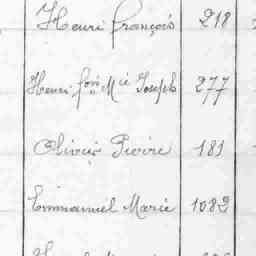 Henri François 218
Henri fois Mie Joseph 277
Olivier Pierre 181
Emmanuel Marie 1082